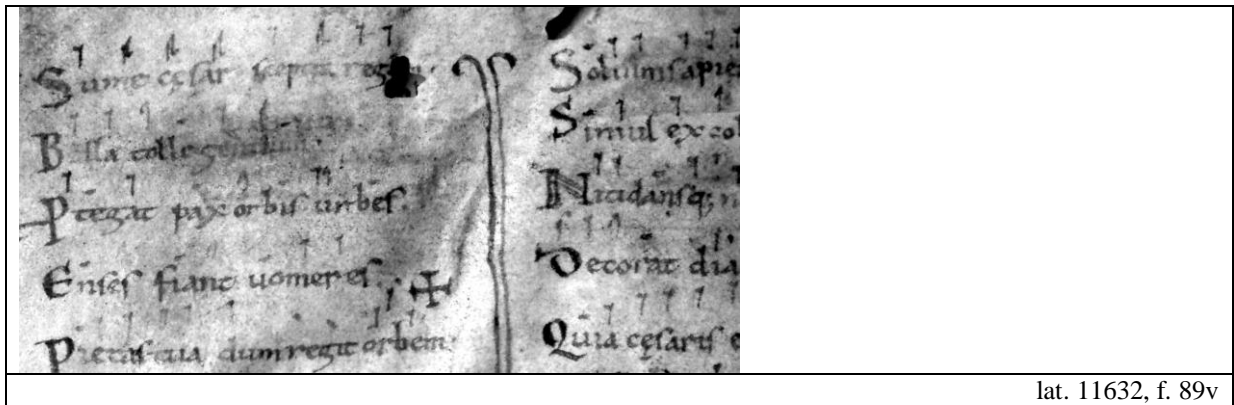 Sume cęsar sceptra reg
Bella tolle gentium
Ptegat pax orbis urbes.
Enses fiant uomeres.
Pietas tua dum regit orbem:
Solium sapie
Simul ex col
Nitidansq; n
Decorat dia
Quia cęsaris e
lat. 11632, f. 89v